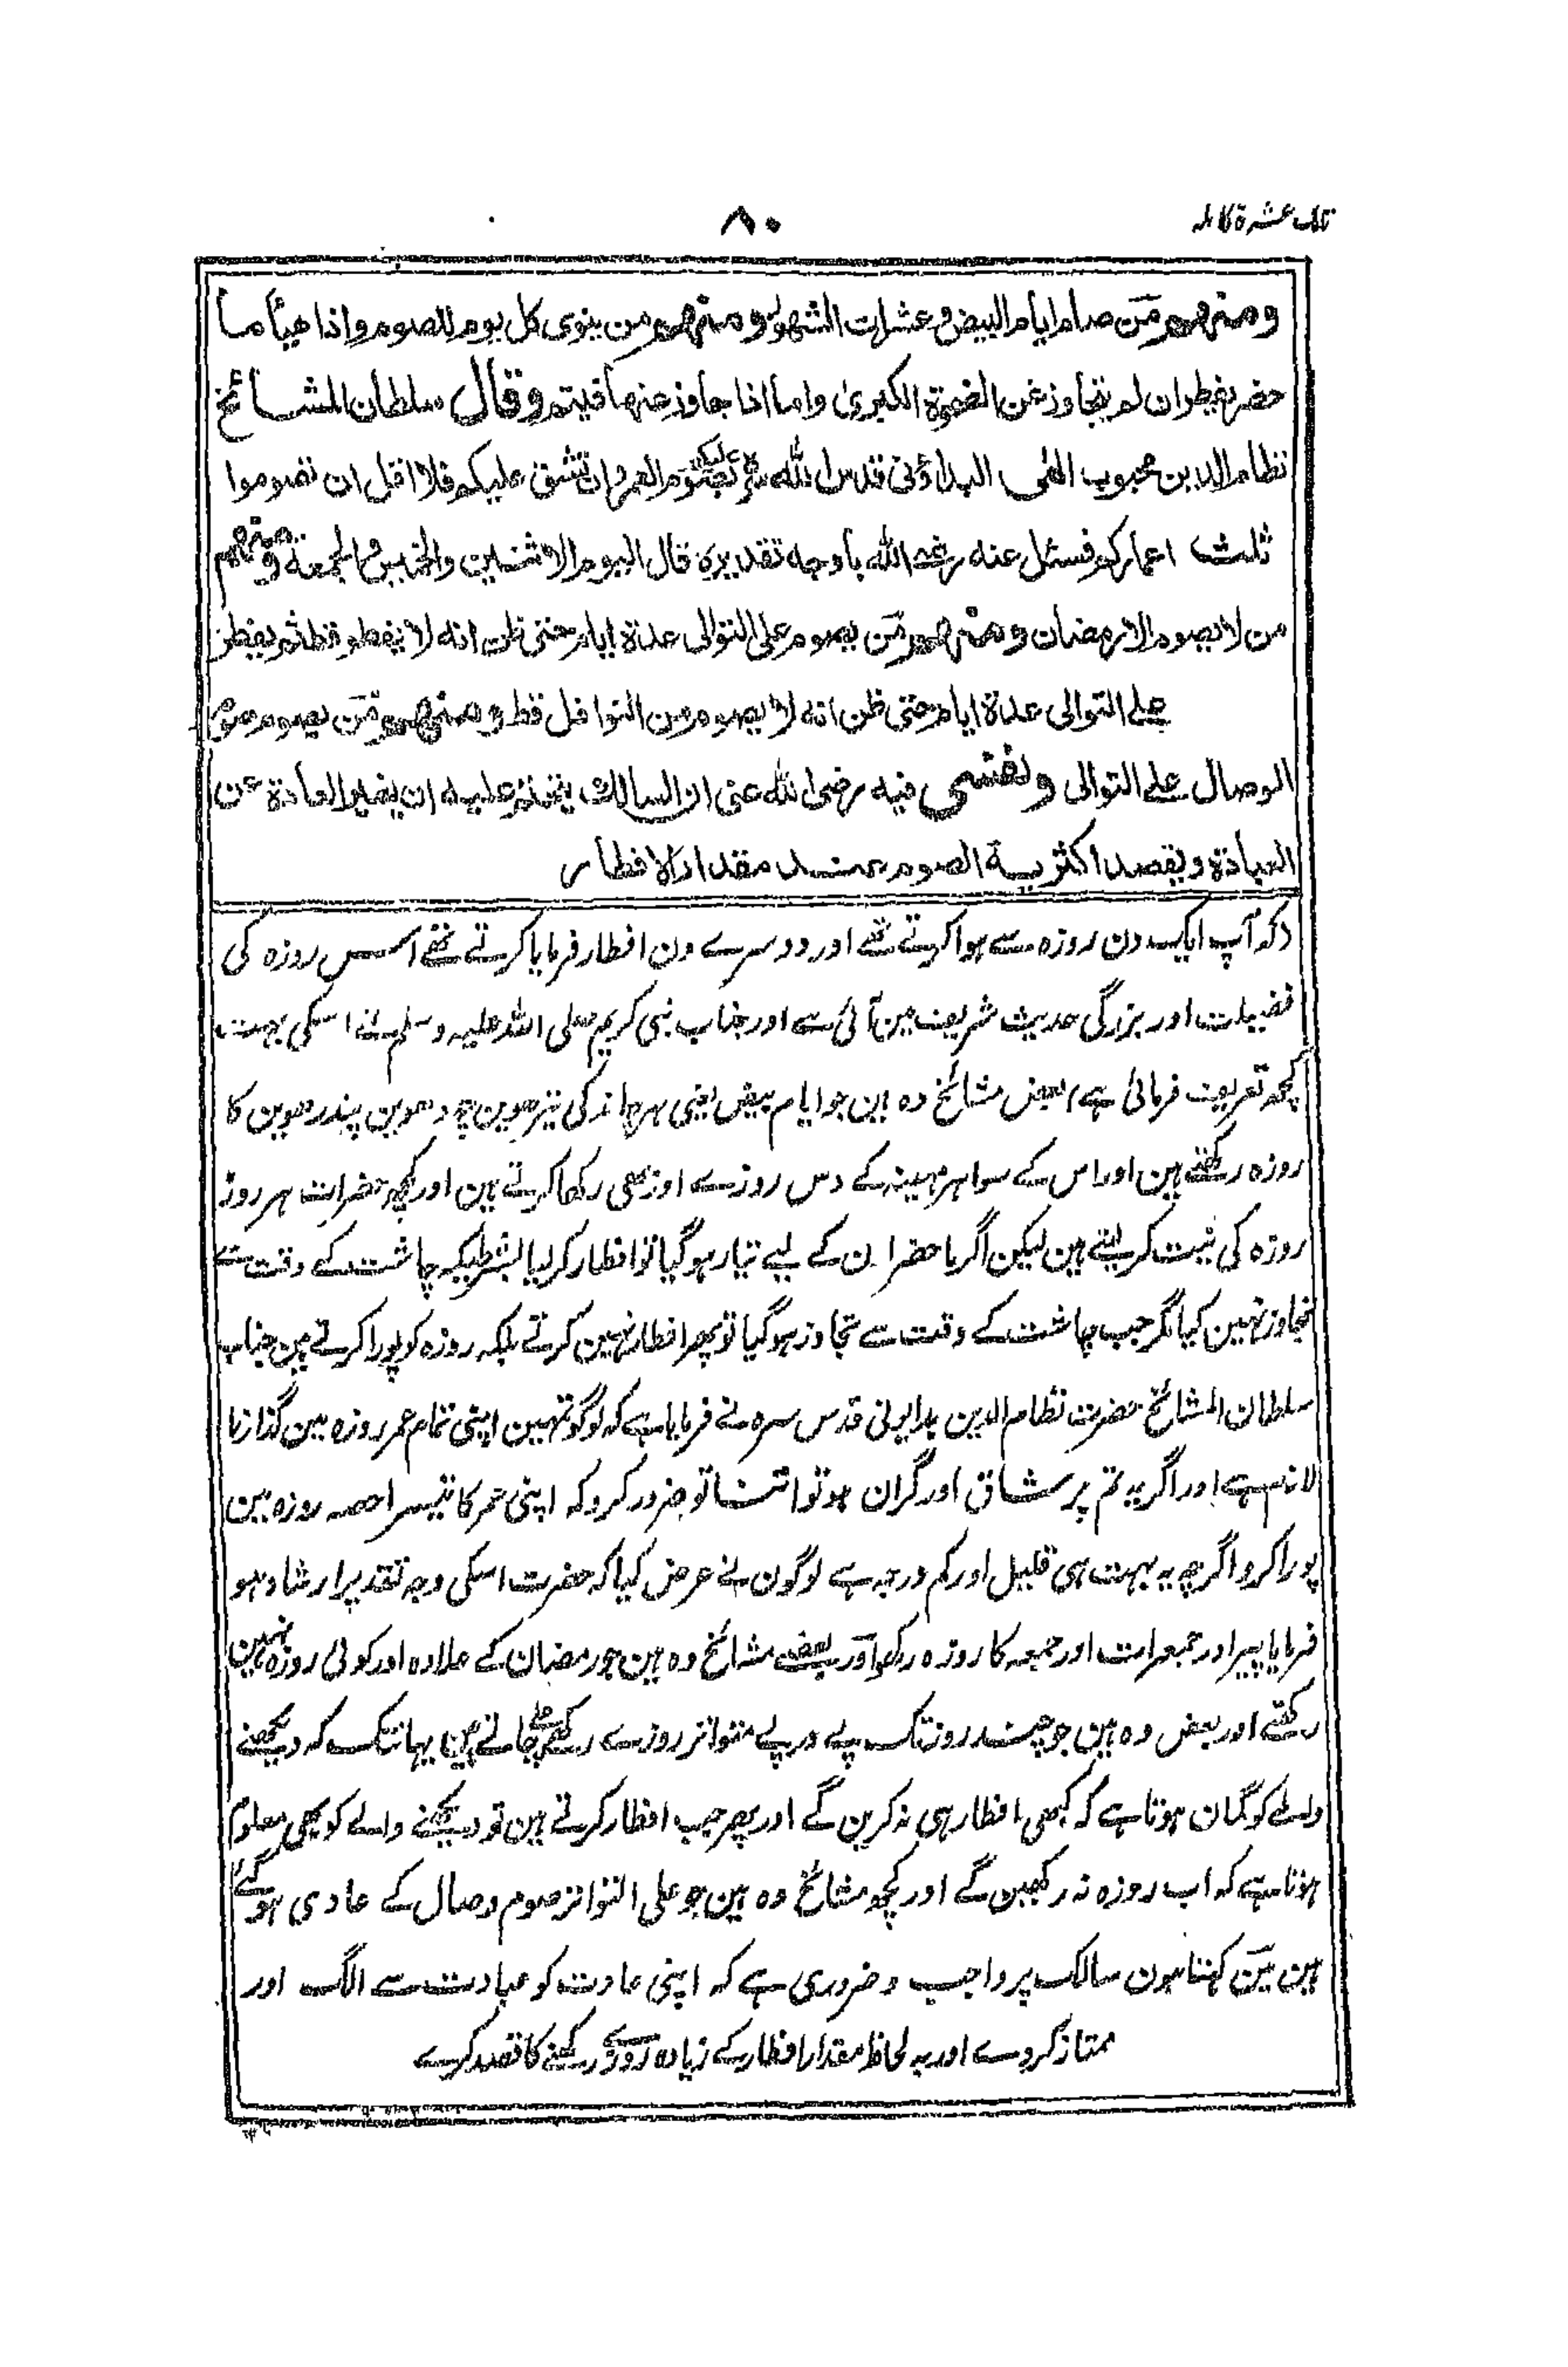 تلک عشرة کاملہ
۸۰
ومنهم من صام ايام البيض وعشرات الشهور ومنهم من ينوى كل يوم للصوم واذا هيأ ما
حضر يفطر ان لم يتجاوز عن الضحوة الكبرىٰ واما اذا جاوز عنها فيتم وقال سلطان المشائخ
نظام الدين محبوب الٰهى البداؤنى قدس الله سره عليكم بصوم العمر وان تشق عليكم فلا اقل ان تصوموا
ثلث اعماركم فسئل عنه رضى الله باوجه تقديره قال اليوم الاثنين والخميس والجمعة ومنهم
من لا يصوم الا رمضان ومنهم من يصوم على التوالى عدة ايام حتى ظن انه لا يفطر قط ثم يفطر
على التوالى عدة ايام حتى ظن انه لا يصوم من النوافل قط ومنهم من يصوم صوم
الوصال على التوالى ونفسى فيه رضى الله عنى ان السالك يتحتم عليه ان يميز العادة عن
العبادة ويقصد اكثرية الصوم بمقدار الافطار
(کہ آپ ایک دن روزہ سے ہوا کرتے تھے اور دوسرے دن افطار فرمایا کرتے تھے اس روزہ کی
فضیلت اور بزرگی حدیث شریف مین آئی ہے اور جناب نبی کریم صلی اللہ علیہ وسلم نے اسکی بہت
کچھ تعریف فرمائی ہے) بعض مشائخ وہ ہین جو ایام بیض یعنی ہر چاند کی تیرھوین چودھوین پندرھوین کا
روزہ رکھتے ہین اور اس کے سوا ہر مہینہ کے دس روزے اور بھی رکھا کرتے ہین اور کچھ حضرات ہر روز
روزہ کی نیت کر لیتے ہین لیکن اگر ما حضر ان کے لیے تیار ہو گیا تو افطار کر لیا بشرطیکہ چاشت کے وقت سے
تجاوز نہین کیا مگر جب چاشت کے وقت سے تجاوز ہو گیا تو پھر افطار نہین کرتے بلکہ روزہ کو پورا کرتے ہین جناب
سلطان المشائخ حضرت نظام الدین بدایونی قدس سرہ نے فرمایا ہے کہ لوگو تمہین اپنی تمام عمر روزہ مین گذارنا
لازم ہے اور اگر یہ تم پر شاق اور گران ہو تو اتنا تو ضرور کرو کہ اپنی عمر کا تیسرا حصہ روزہ مین
پورا کرو اگرچہ یہ بہت ہی قلیل اور کم درجہ ہے لوگون نے عرض کیا کہ حضرت اسکی وجہ تقدیر ارشاد ہو
فرمایا پیر اور جمعرات اور جمعہ کا روزہ رکھو اور بعضے مشائخ وہ ہین جو رمضان کے علاوہ اور کوئی روزہ نہین
رکھتے اور بعض وہ ہین جو چند روز تک پے در پے متواتر روزے رکھے چلے جاتے ہین یہانتک کہ دیکھنے
والے کو گمان ہوتا ہے کہ کبھی افطار ہی نہ کرین گے اور پھر جب افطار کرتے ہین تو دیکھنے والے کو یہی معلوم
ہوتا ہے کہ اب روزہ نہ رکھین گے اور کچھ مشائخ وہ ہین جو علی التواتر صوم وصال کے عادی ہو گئے
ہین مین کہتا ہون سالک پر واجب و ضروری ہے کہ اپنی عادت کو عبادت سے الگ اور
ممتاز کر دے اور بہ لحاظ مقدار افطار کے زیادہ روزے رکھنے کا قصد کرے